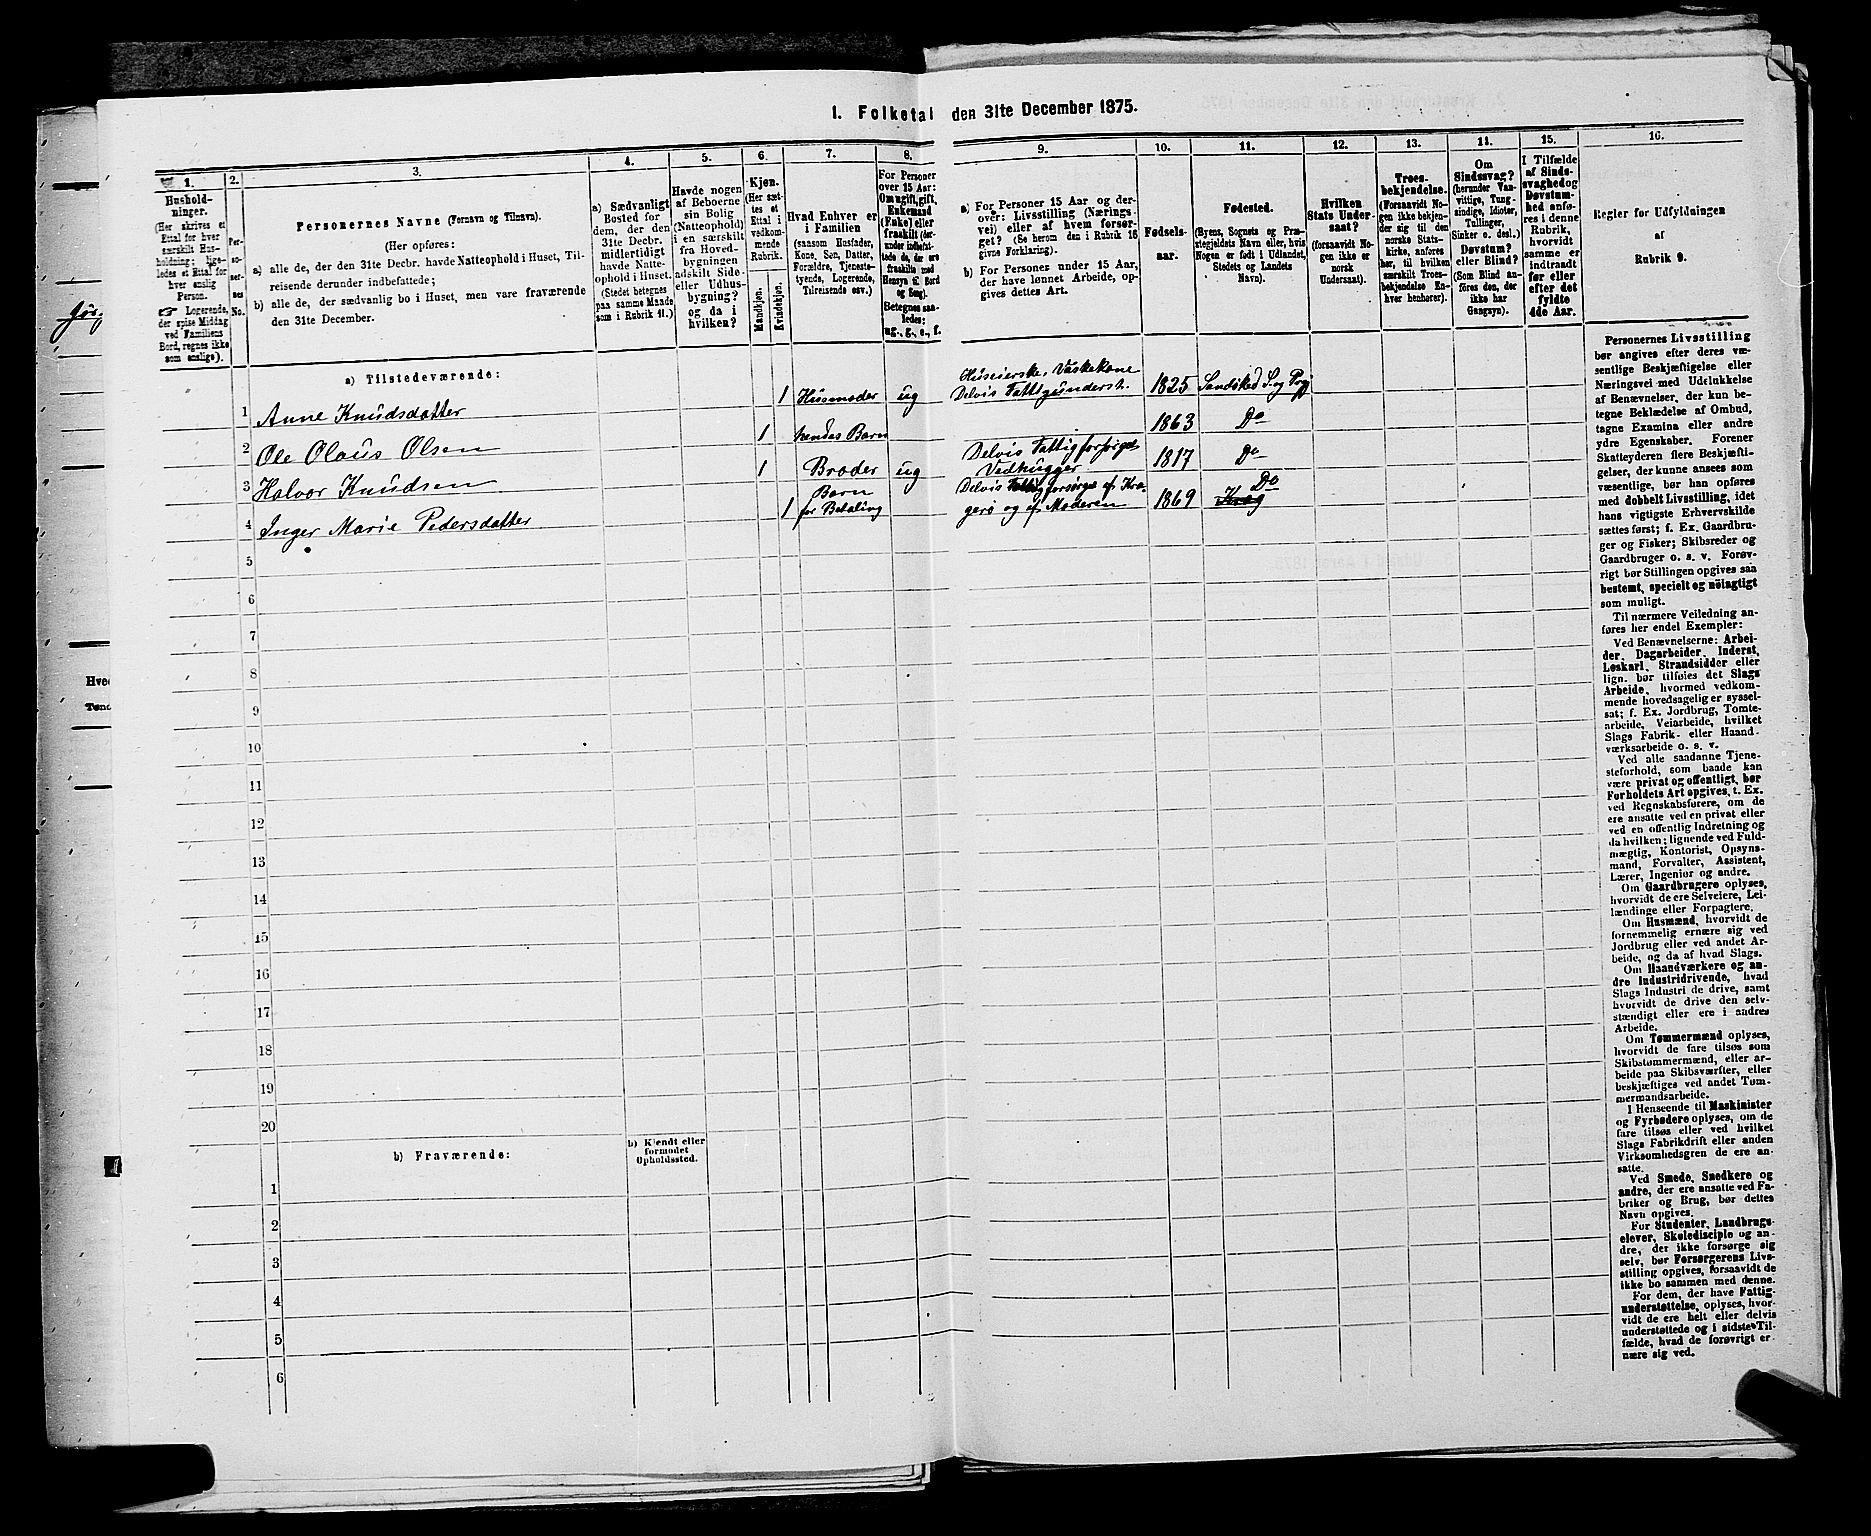 1. Folketal den 31te December 1875.
1.
2.
3.
4.
5.
6.
7.
8.
9.
10.
11.
12.
13.
14.
15.
16.
Hushold-
ninger.
(Her skrives et
Ettal for hver
særskilt Hus-
holdning; lige-
ledes et Ettal for
hver enslig
Person.
☞ Logerende,
der spise Middag
ved Familiens
Bord, regnes ikke
som enslige).
Per-
so-
ner-
nes
No.
Personernes Navne (Fornavn og Tilnavn).
(Her opføres:
a) alle de, der den 31te Decbr. havde Natteophold i Huset, Til-
reisende derunder indbefattede;
b) alle de, der sædvanlig bo i Huset, men vare fraværende
den 31te December.
a) Sædvanligt
Bosted for
dem, der den
31te Decbr.
midlertidigt
havde Natte-
ophold i Huset.
(Stedet betegnes
paa samme Maade
som i Rubrik 11.)
Havde nogen
af Beboerne
sin Bolig
(Natteophold)
i en særskilt
fra Hoved-
bygningen
adskilt Side-
eller Udhus-
bygning?
og da i
hvilken?
Kjøn.
(Her sæt-
tes et
Ettal i
vedkom-
mende
Rubrik.
Mandkjøn.
Kvindekjøn.
Hvad Enhver er
i Familien
(saasom Husfader,
Kone, Søn, Datter,
Forældre, Tjeneste-
tyende, Logerende,
Tilreisende osv.)
For Personer
over 15 Aar:
Om ugift, gift,
Enkemand
(Enke) eller
fraskilt (der-
under indbefat-
tede de, der ere
fraskilte med
Hensyn til Bord
og Seng).
Betegnes saa-
ledes:
ug., g., e., f.
a) For Personer 15 Aar og der-
over: Livsstilling (Nærings-
vei) eller af hvem forsør-
get? (Se herom den i Rubrik 16
givne Forklaring).
b) For Personer under 15 Aar,
der have lønnet Arbeide, op-
gives dettes Art.
Fødsels-
aar.
Fødested.
(Byens, Sognets og Præ-
stegjeldets Navn eller, hvis
Nogen er født i Udlandet,
Stedets og Landets
Navn).
Hvilken
Stats Under-
saat?
(forsaavidt No-
gen ikke er
norsk
Undersaat).
Troes-
bekjendelse.
(Forsaavidt No-
gen ikke bekjen-
der sig til den
norske Stats-
kirke, anføres
her, til hvilken
særskilt Troes-
bekjendelse En-
hver henhører).
Om
Sindssvag?
(herunder Van-
vittige, Tung-
sindige, Idioter,
Tullinger,
Sinker o. desl.)
Døvstum?
eller Blind?
(Som Blind an-
føres den, der
ikke har
Gangsyn).
I Tilfælde
af Sinds-
svaghed og
Døvstum-
hed anfø-
res i denne
Rubrik,
hvorvidt
samme er
indtraadt
før eller
efter det
fyldte
4de Aar.
Regler for Udfyldningen
af
Rubrik 9.
a) Tilstedeværende:
1 Anne Knudsdatter 1 Husmoder ug Huseierske, Vaskekone Delvis Fattigunderst. 1825 Sandøkedl S. og Prgj
2 Ole Olaus Olsen 1 hendes Barn 1863 Do
3 Halvor Knudsen 1 Broder ug Delvis Fattigforsørget Vedhugger 1817 Do
4 Inger Marie Pedersdatter 1 Barn for Betaling Delvis Fattigforsørget af Kra- gerø og af Moderen 1869 Krag Do
5
6
7
8
9
10
11
12
13
14
15
16
17
18
19
20
b) Fraværende:
b) Kjendt eller
formodet
Opholdssted.
1
2
3
4
5
6
Personernes Livsstilling
bør angives efter deres væ-
sentlige Beskjæftigelse eller
Næringsvei med Udelukkelse
af Benævnelser, der kun be-
tegne Beklædelse af Ombud,
tagne Examina eller andre
ydre Egenskaber. Forener
Skatteyderen flere Beskjæfti-
gelser, der kunne ansees som
væsentlige, bør han opføres
med dobbelt Livsstilling, idet
hans vigtigste Erhvervskilde
sættes først; f. Ex. Gaardbru-
ger og Fisker; Skibsreder og
Gaardbruger o. s. v. Forøv-
rigt bør Stillingen opgives saa
bestemt, specielt og nøiagtigt
som muligt.
Til nærmere Veiledning an-
føres her endel Exempler:
Ved Benævnelserne: Arbei-
der, Dagarbeider, Inderst,
Løskarl, Strandsidder eller
lign. bør tilføies det Slags
Arbeide, hvormed vedkom-
mende hovedsagelig er syssel-
sat; f. Ex. Jordbrug, Tomte-
arbeide, Veiarbeide, hvilket
Slags Fabrik- eller Haand-
værksarbeide o. s. v.
Ved alle saadanne Tjene-
steforhold, som baade kan
være privat og offentligt, bør
Forholdets Art opgives, t. Ex.
ved Regnskabsførere, om de
ere ansatte ved en privat eller
ved en offentlig Indretning og
da hvilken; lignende ved Fuld-
mægtig, Kontorist, Opsyns-
mand, Forvalter, Assistent,
Lærer, Ingeniør og andre.
Om Gaardbrugere oplyses,
hvorvidt de ere Selveiere, Lei-
lændinge eller Forpagtere.
Om Husmænd, hvorvidt de
fornemmelig ernære sig ved
Jordbrug eller ved andet Ar-
beide, og da af hvad Slags.
Om Haandværkere og an-
dre Industridrivende, hvad
Slags Industri de drive, samt
hvorvidt de drive den selv-
stændigt eller ere i andres
Arbeide.
Om Tømmermænd oplyses,
hvorvidt de fare tilsøs som
Skibstømmermænd, eller ar-
beide paa Skibsværfter, eller
beskjæftiges ved andet Tøm-
mermandsarbeide.
I Henseende til Maskinister
og Fyrbødere oplyses, om de
fare tilsøs eller ved hvilket
Slags Fabrikdrift eller anden
Virksomhedsgren de ere an-
satte.
Ved Smede, Snedkere og
andre, der ere ansatte ved Fa-
briker og Brug, bør dettes
Navn opgives.
For Studenter, Landbrugs-
elever, Skoledisciple og an-
dre, der ikke forsørge sig
selv, bør Forsørgerens Livs-
stilling opgives, forsaavidt de
ikke bo sammen med denne.
For dem, der have Fattig-
understøttelse, oplyses, hvor-
vidt de ere helt eller delvis
understøttede og i sidste Til-
fælde, hvad de forøvrigt er-
nære sig ved.